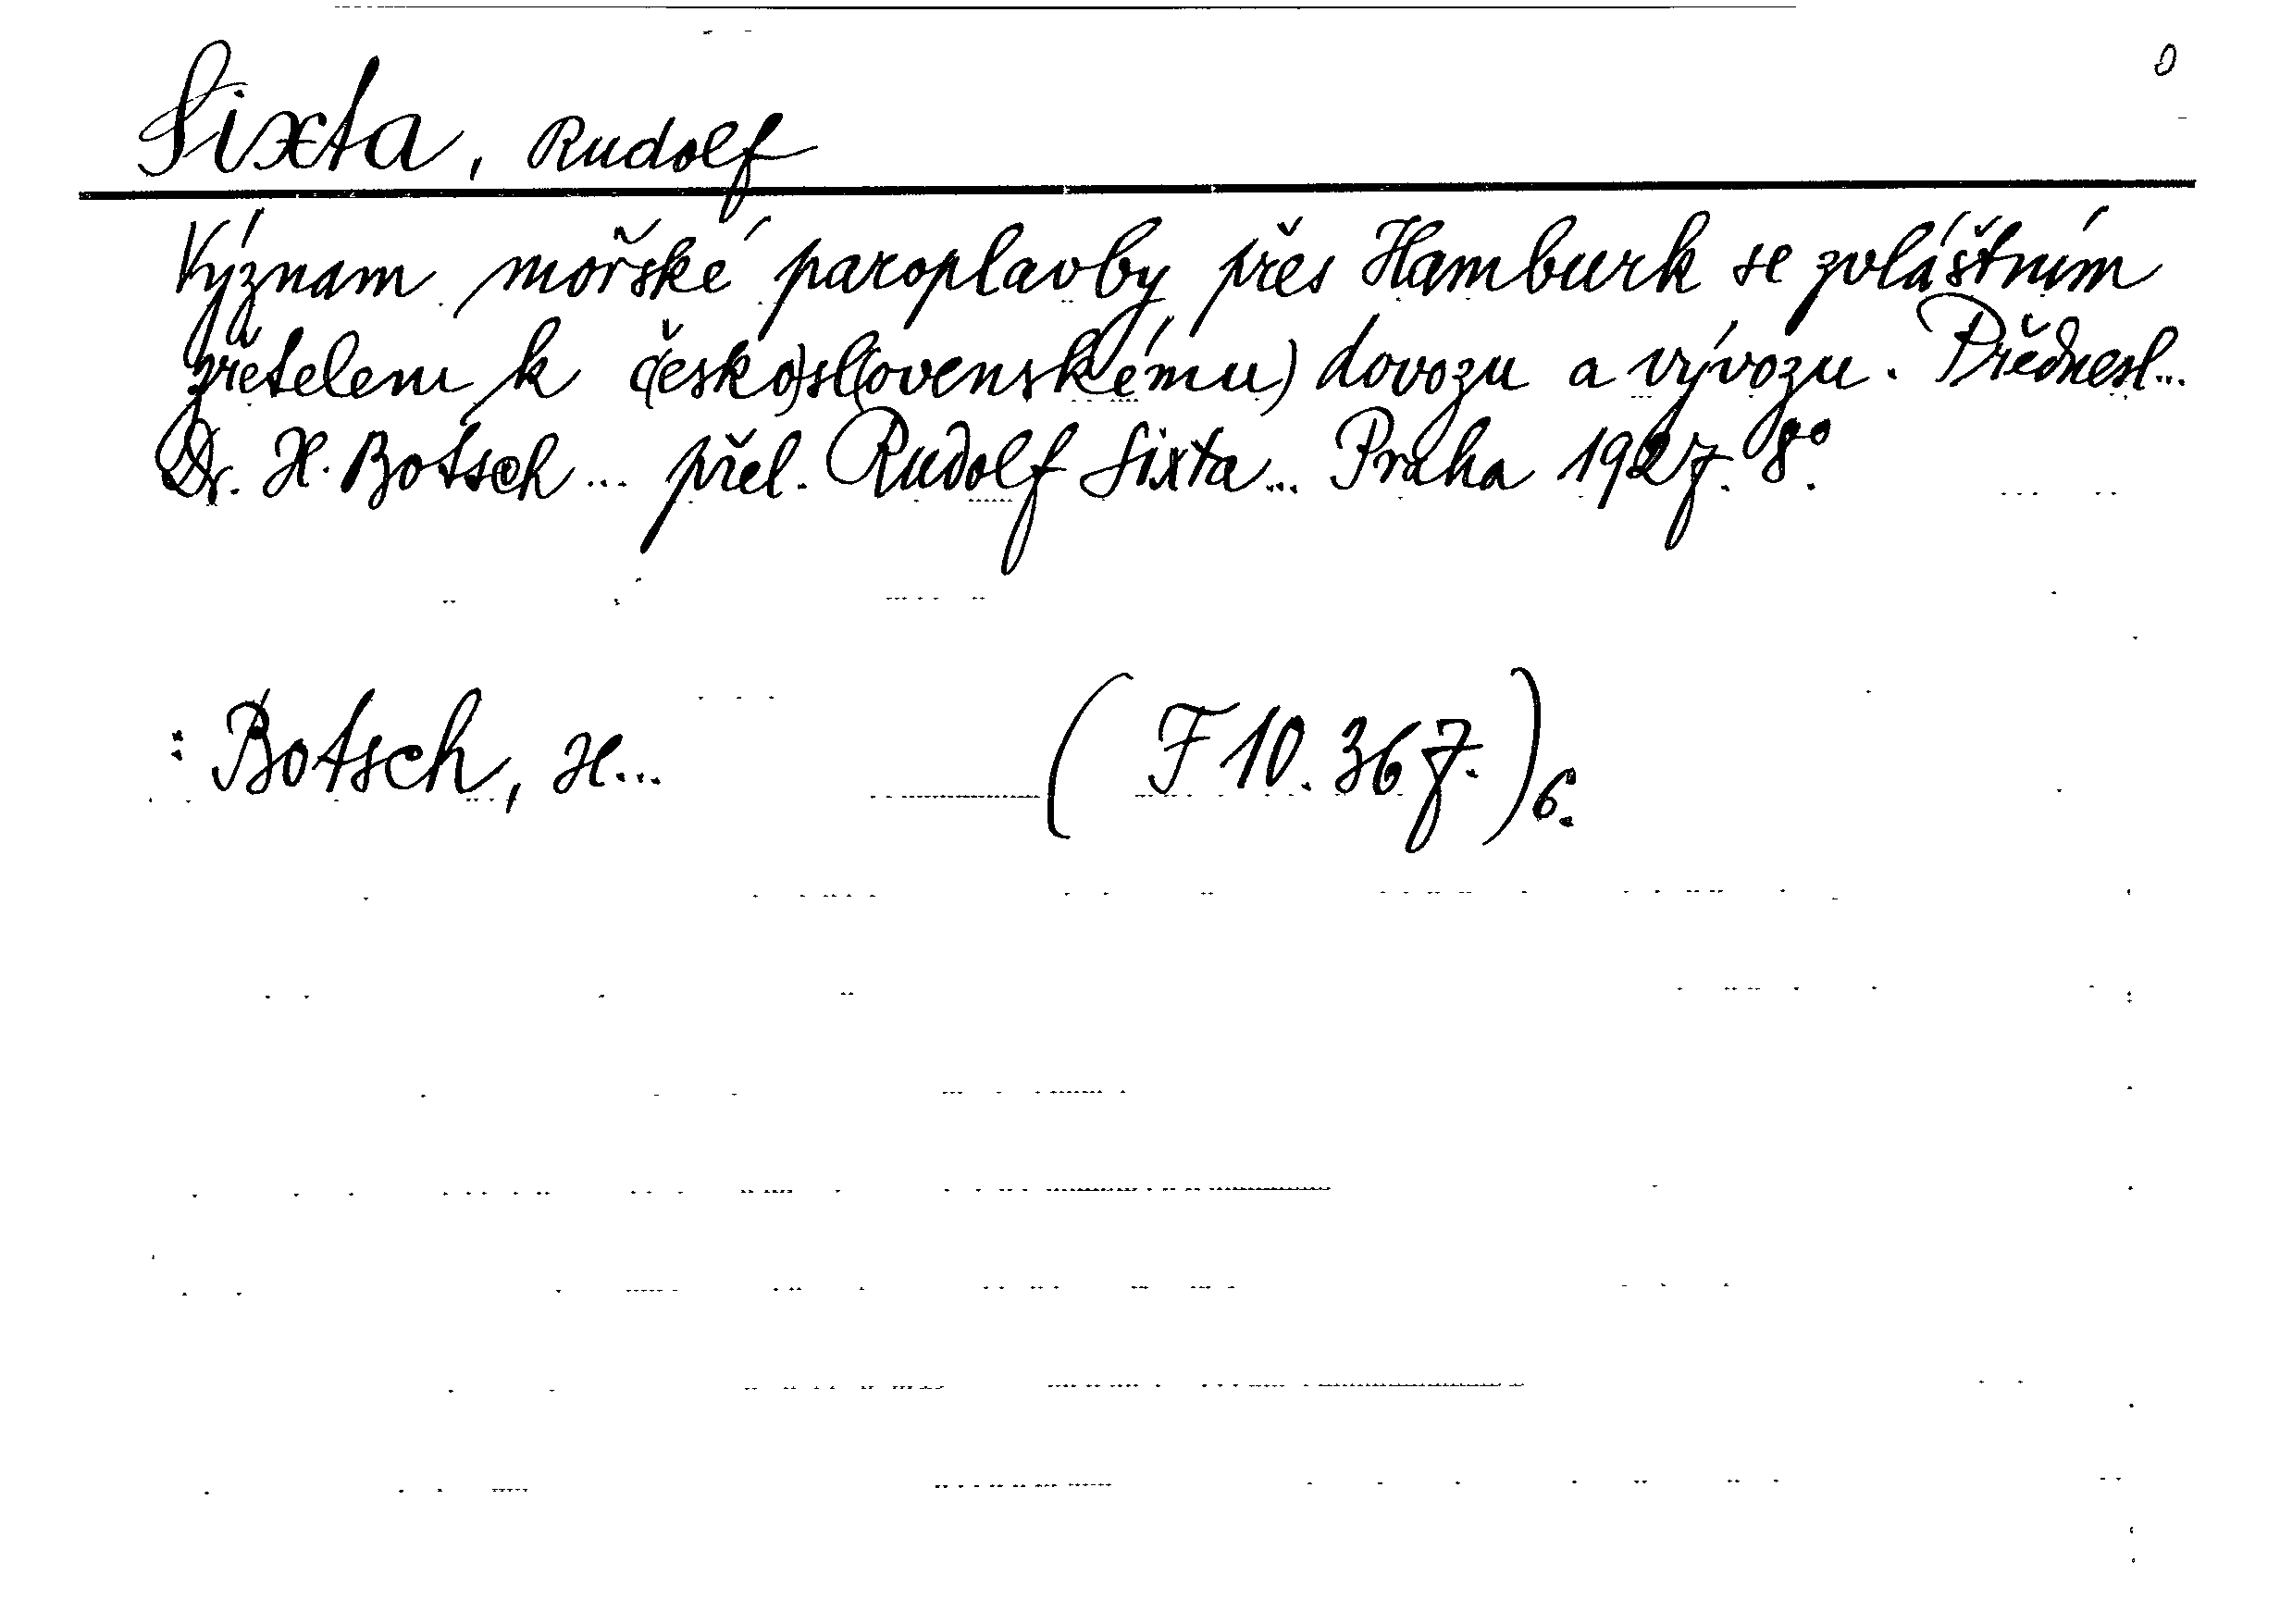 0
Sixta, Rudolf
Význam mořské paroplavby přes Hamburk se zvláštním
zřetelem k česko)sl(ovenskému) dovozu a vývozu. Přednesl...
Dr. H. Botsch... přel. Rudolf Sixta... Praha 1927. 8°.
: Botsch, H... (F 10.367.)6.